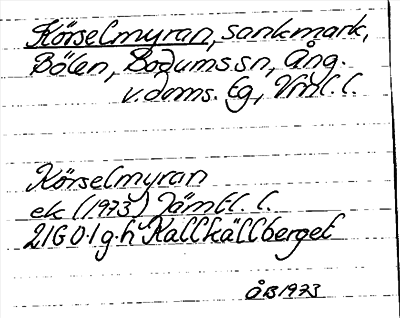 Körselmyran, sankmark,
Bölen, Bodums sn, Ång.
v. doms. Eg, Vml. l.
Körselmyran
ek (1973) Jämtl. l.
21G 0-1 g-h Kallkällberget
ÅB 1973